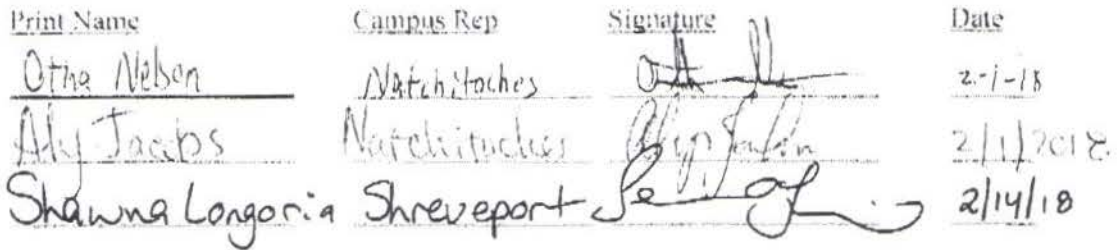 Print Name Campus Rep Signature Date
Otha Nelson Natchitoches 2-1-18
Aly Jacobs Natchitoches 2/1/2018
Shawna Longoria Shreveport 2/14/18